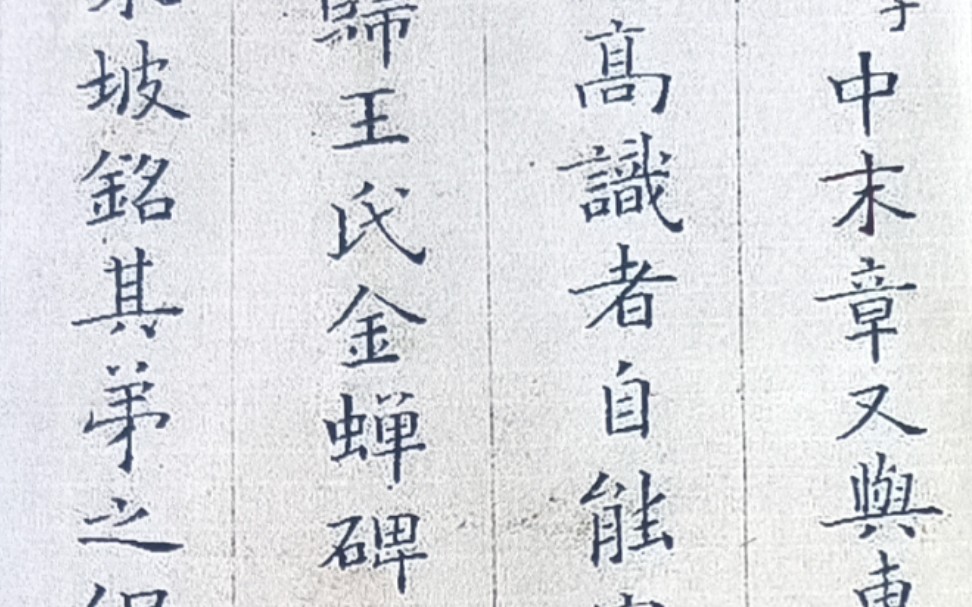 中末章又與東
高識者自能
歸王氏金蟬碑
坡銘其弟之